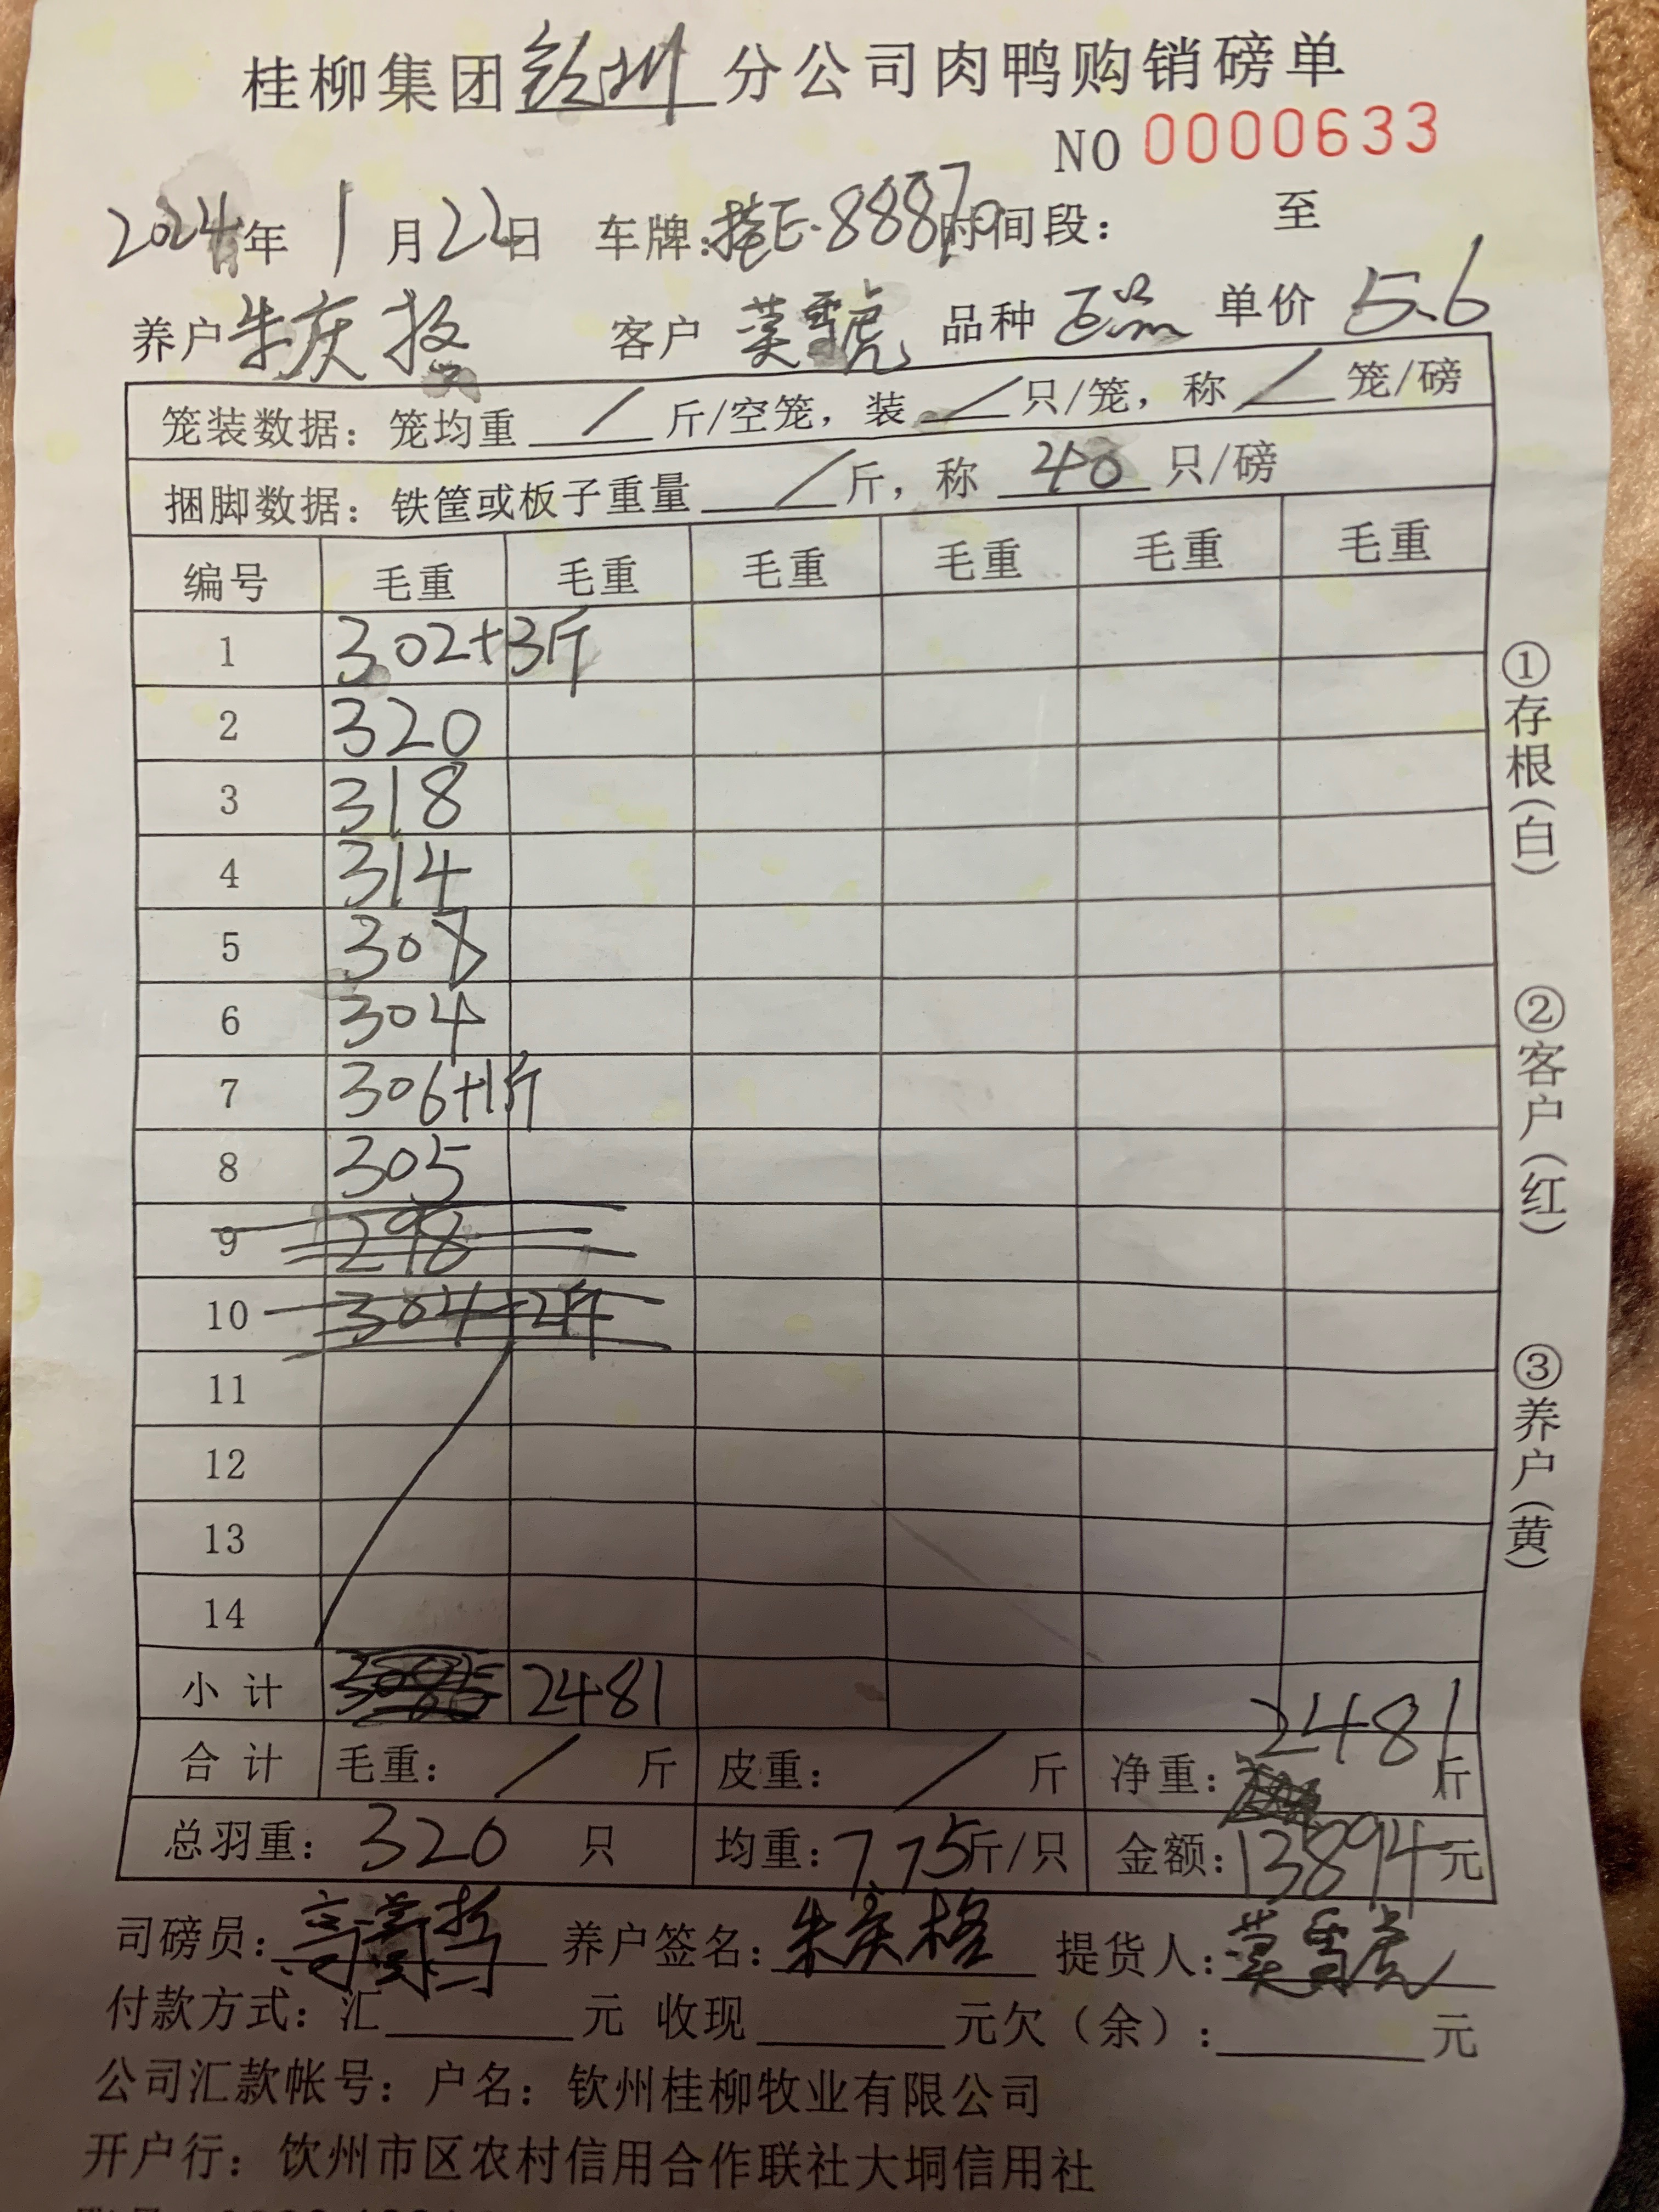 桂柳集团钦州分公司肉鸭购销磅单
NO 0000633
2024年 1月22日 车牌:桂E·88870时间段: 至
养户朱庆格 客户 莫雪虎 品种 单价 5.6
笼装数据:笼均重 / 斤/空笼,装 / 只/笼,称 / 笼/磅
捆脚数据:铁筐或板子重量 / 斤,称 40 只/磅
编号 毛重 毛重 毛重 毛重 毛重 毛重
1 302+3斤
2 320
3 318
4 314
5 308
6 304
7 306+1斤
8 305
9 298
10 304+2斤
11
12
13
14
小计 2481
合计 毛重: / 斤 皮重: / 斤 净重:2481斤
总羽重:320 只 均重:7.75斤/只 金额:13894元
司磅员: 养户签名:朱庆格 提货人:莫雪虎
付款方式:汇 元 收现 元欠(余): 元
公司汇款帐号:户名:钦州桂柳牧业有限公司
开户行:钦州市区农村信用合作联社大垌信用社
①存根(白)
②客户(红)
③养户(黄)